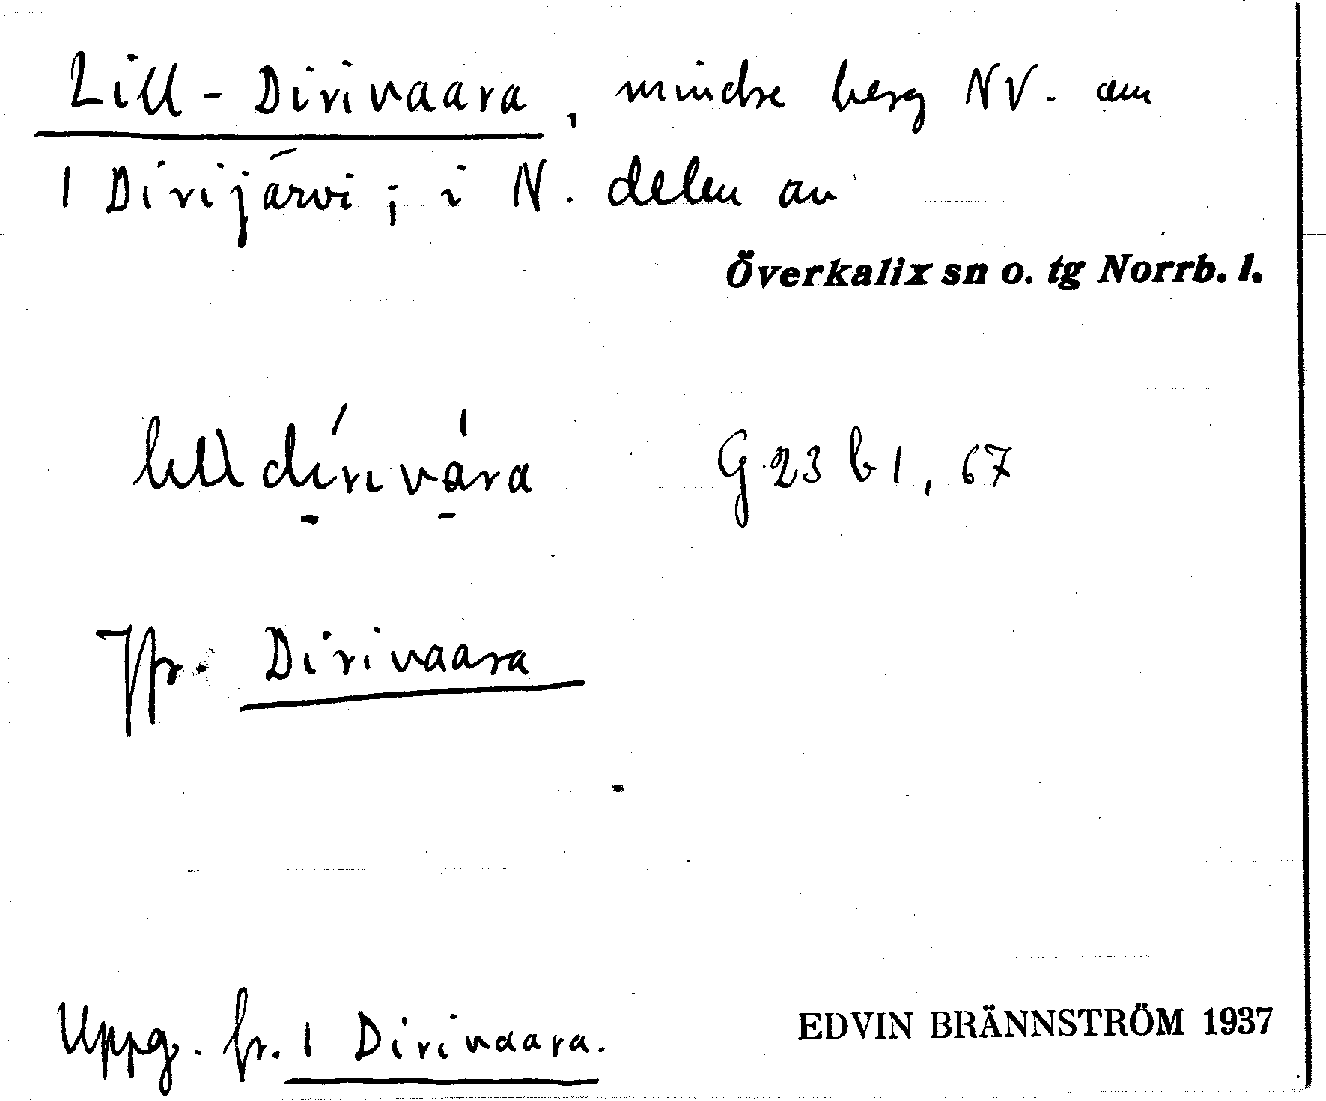 Lill-Dirivaara, mindre berg NV. om
1 Dirijärvi; i N. delen av
Överkalix sn o. tg Norrb. l.
lill dı́rivára G 23 b 1, 67
Jfr. Dirivaara
Uppg. fr. 1 Dirivaara.
EDVIN BRÄNNSTRÖM 1937